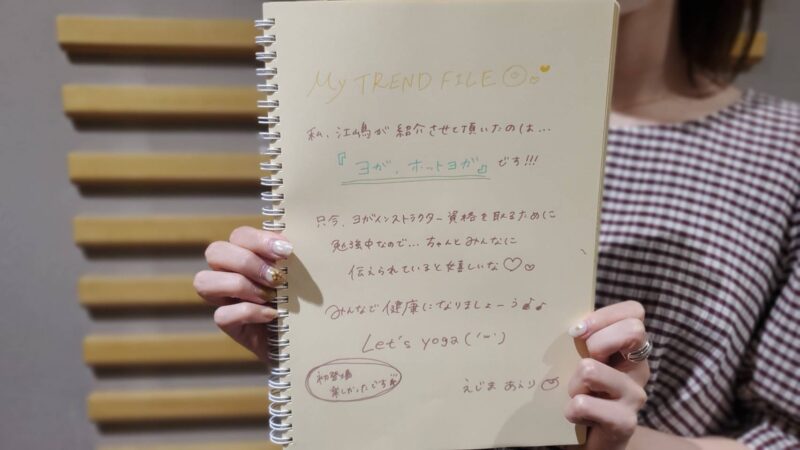 My TREND FILE
私、江嶋が紹介させて頂いたのは...
『ヨガ、ホットヨガ』です!!!
只今、ヨガインストラクター資格を取るために
勉強中なので...ちゃんとみんなに
伝えられていると嬉しいな♡♡
みんなで健康になりましょーう♪♪
Let's yoga ('ー')
初登場
楽しかったです
えじま あんり